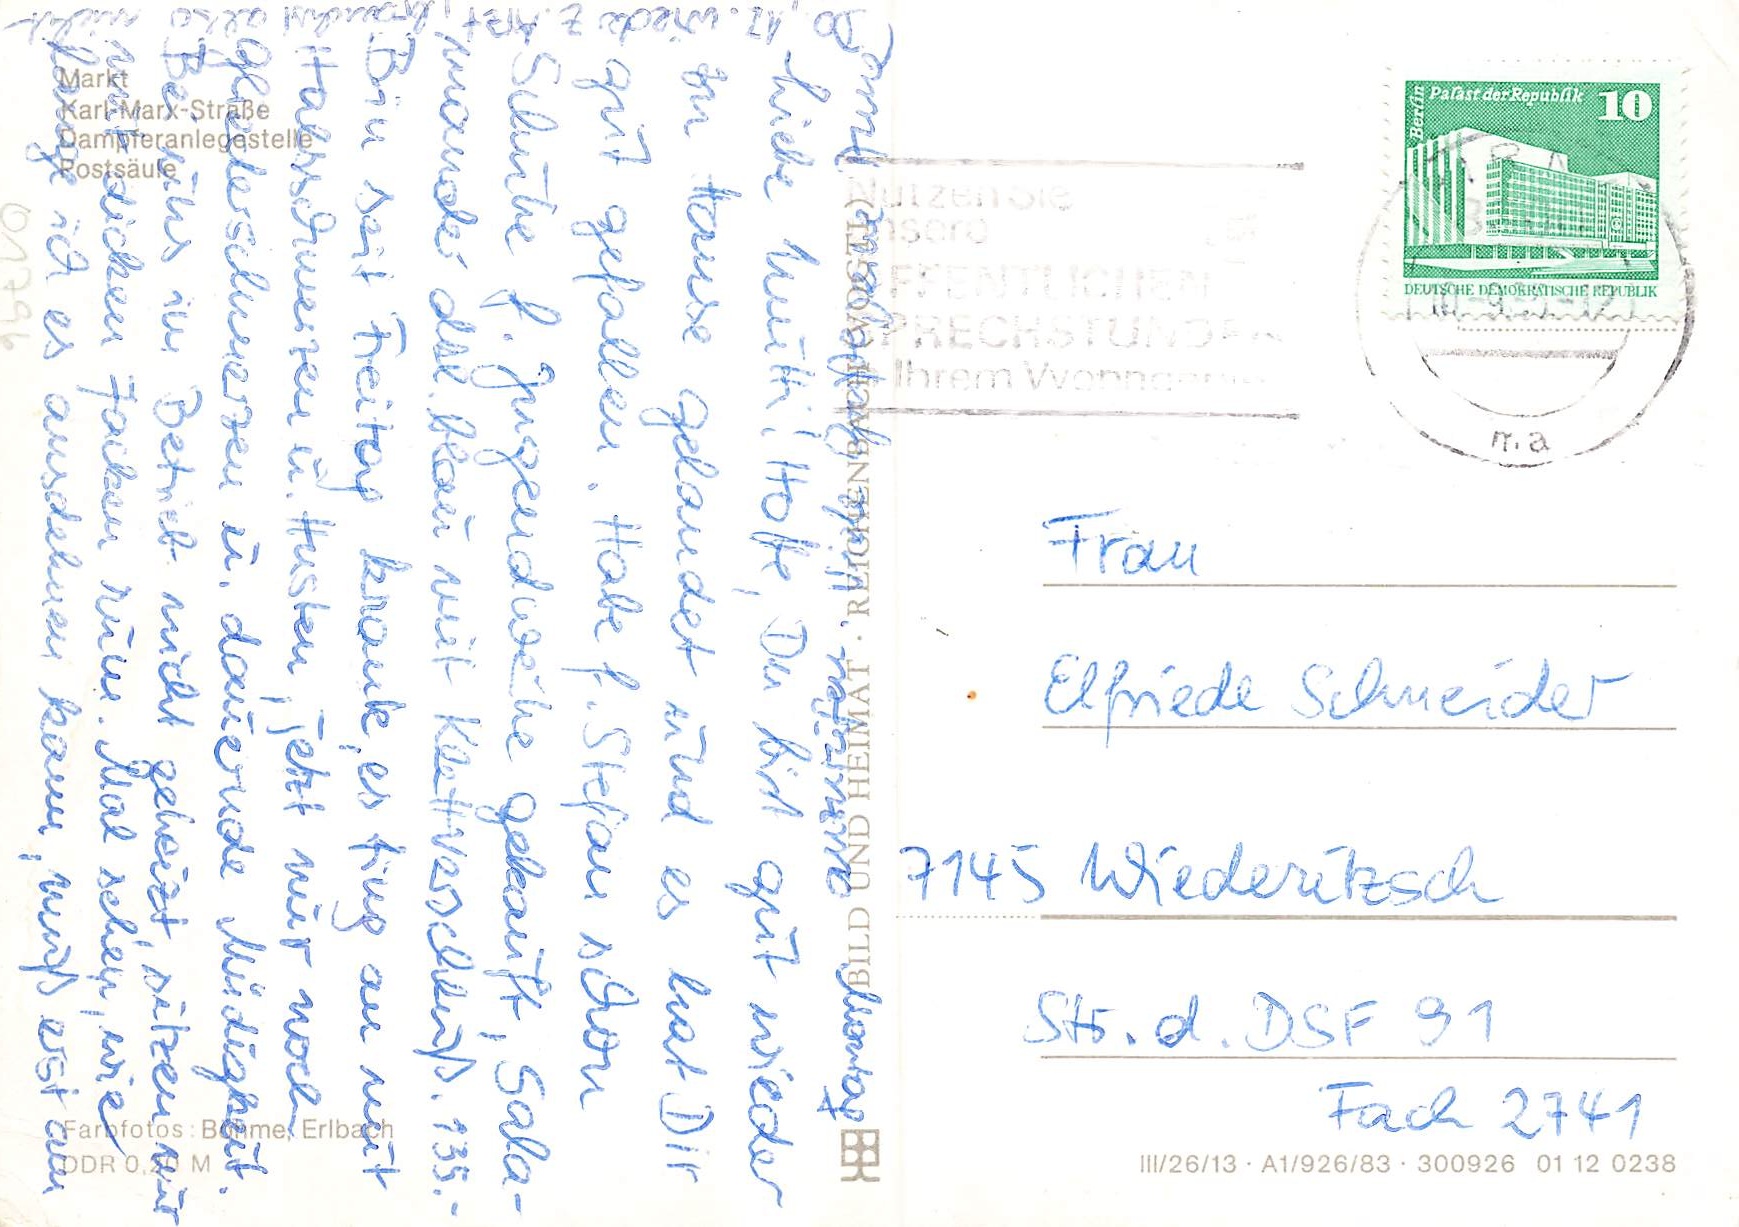 Markt
Karl-Marx-Straße
Dampferanlegestelle
Postsäule
01796
Montag
Liebe Mutti! Hoffe, Du bist gut wieder
zu Hause gelandet und es hat Dir
gut gefallen. Habe f. Stefan schon
Schuhe f. Jugendweihe gekauft, Sala-
mander dkl. blau mit Klettverschluß. 135.-
Bin seit Freitag krank, es fing an mit
Halsschmerzen u. Husten, jetzt nur noch
Gliederschmerzen u. dauernde Müdigkeit.
Bei uns im Betrieb nicht geheizt, sitzen nur
mit dicken Jacken rum. Mal sehen, wie
lange ich es ausdehnen kann, muß erst am
Do., 17. wieder z. Arzt, brauchst also nicht
Farbfotos: Böhme, Erlbach
DDR 0,20 M
BILD UND HEIMAT · REICHENBACH (VOGTL)
Nutzen Sie
unsere
ÖFFENTLICHEN
SPRECHSTUNDEN
Ihrem
Berlin
Palast der Republik
10
DEUTSCHE DEMOKRATISCHE REPUBLIK
m.a
Frau
Elfriede Schneider
7145 Wiederitzsch
Str. d. DSF 91
Fach 2741
III/26/13 · A1/926/83 · 300926 01 12 0238